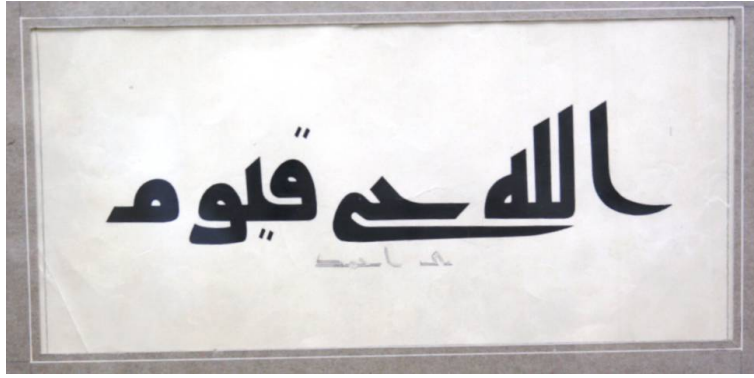 الله حي قيوم